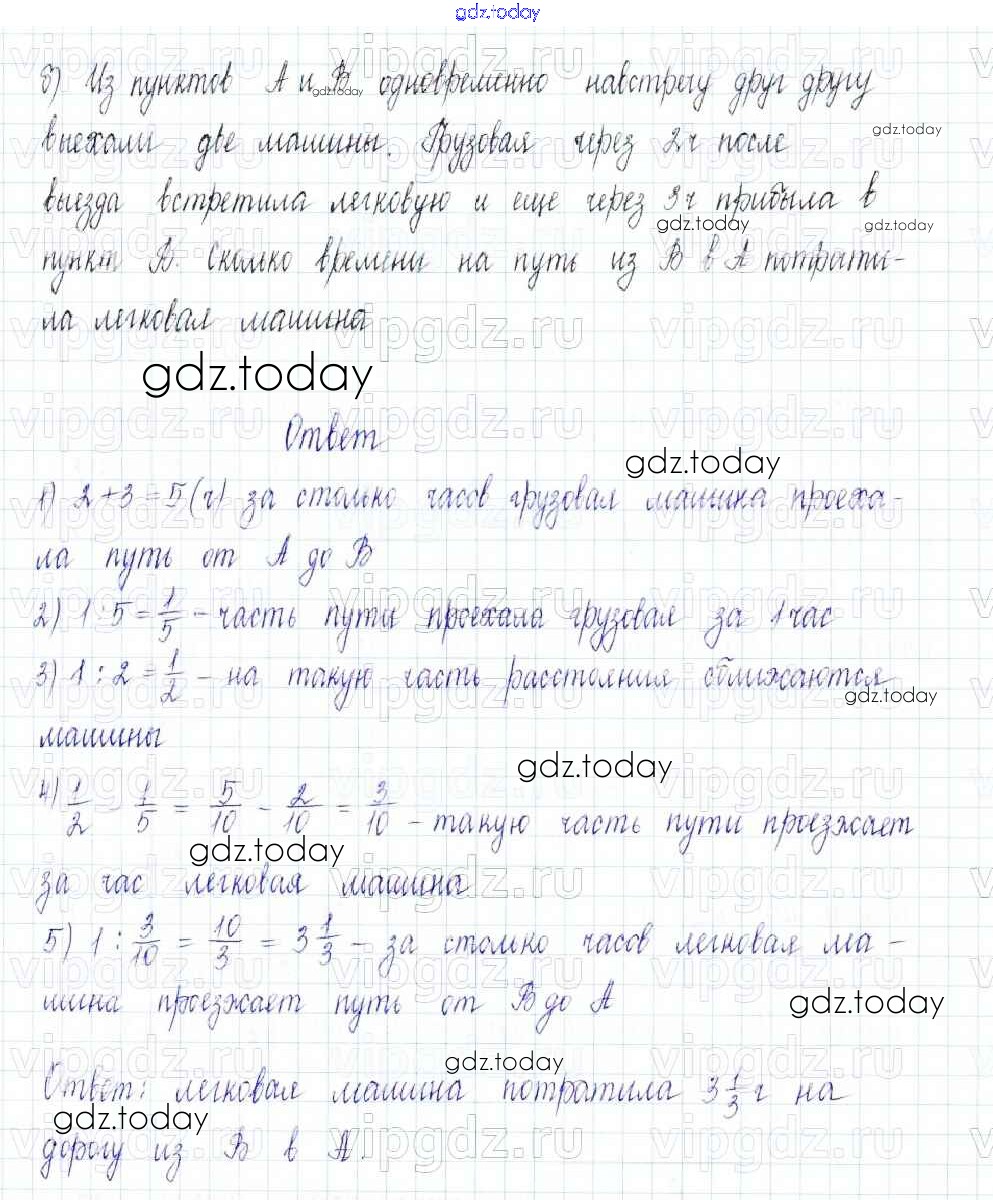 gdz.today
б) Из пунктов А и В одновременно навстречу друг другу
выехали две машины. Грузовая через 2ч после
выезда встретила легковую и еще через 3ч прибыла в
пункт В. Сколько времени на путь из В в А потрати-
ла легковая машина
gdz.today
Ответ
1) 2+3=5(ч) за столько часов грузовая машина проеха-
ла путь от А до В
2) 1:5=1/5 - часть пути проехала грузовая за 1 час
3) 1:2=1/2 - на такую часть расстояния сближаются
машины
4) 1/2 - 1/5 = 5/10 - 2/10 = 3/10 - такую часть пути проезжает
за час легковая машина
5) 1 : 3/10 = 10/3 = 3 1/3 - за столько часов легковая ма-
шина проезжает путь от В до А
Ответ: легковая машина потратила 3 1/3 ч на
дорогу из В в А.